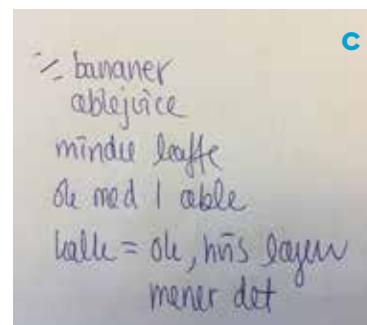 C
½ bananer
æblejuice
mindre kaffe
ok med 1 æble
kalk = ok, hvis lægen
mener det